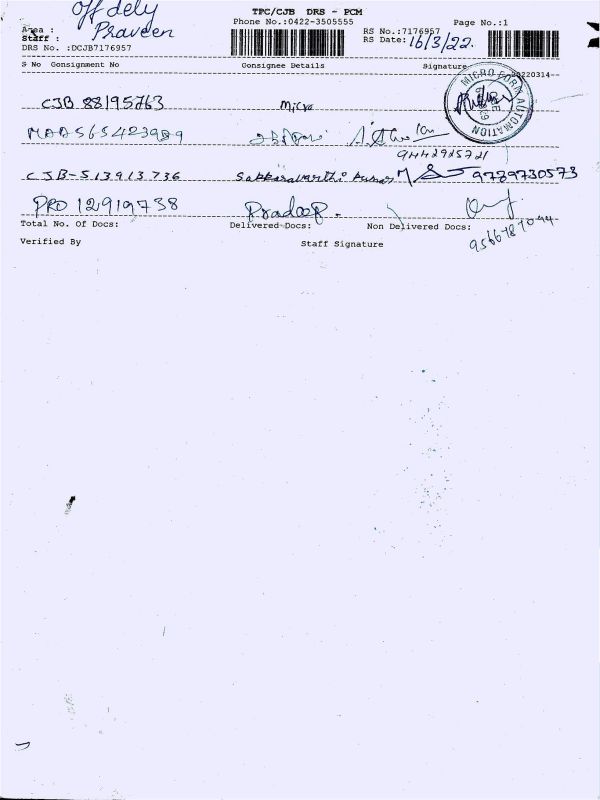 Off dely
TPC/CJB DRS - PCM
Phone No.:0422-3505555 Page No.:1
Area :
Staff : Praveen
RS No.:7176957
RS Date: 16/3/22.
DRS No. :DCJB7176957
S No Consignment No Consignee Details Signature
20220314--
MICRO FORM AUTOMATION
CJB 88195763 micro
MAA565423989
9442925721
CJB-513913736 Sakkaravarthi kumar 9789730573
PRO 12919738 Pradeep.
Total No. of Docs: Delivered Docs: Non Delivered Docs:
Verified By Staff Signature